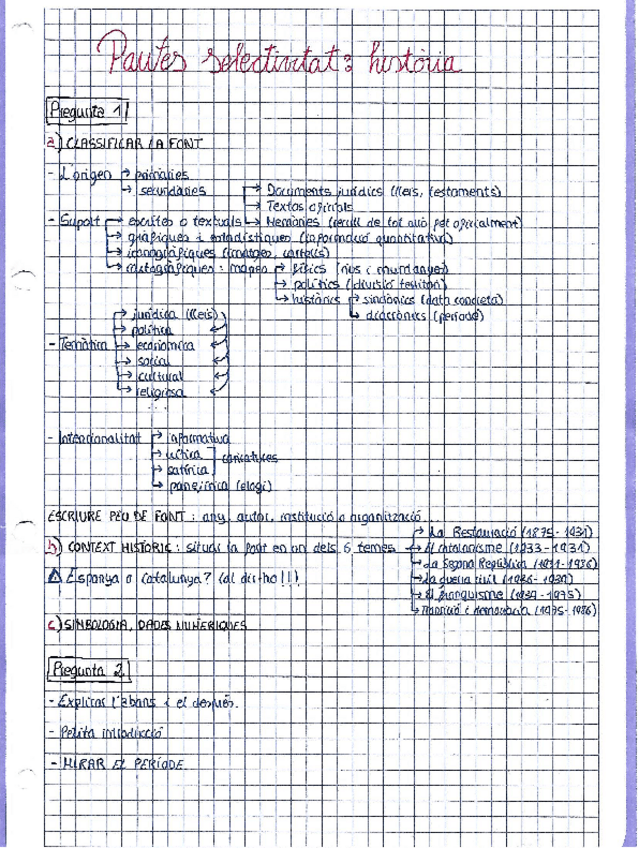 Pautes selectivitat: història
Pregunta 1
a) CLASSIFICAR LA FONT
- L'origen → primàries
→ secundàries
→ Documents jurídics (lleis, testaments)
→ Textos oficials
- Suport → escrites o textuals → Memòries (recull de tot allò fet oficialment)
→ gràfiques i estadístiques (informació quantitativa)
→ iconogràfiques (imatges, cartells)
→ cartogràfiques: mapes → físics (rius i muntanyes)
→ polítics (divisió territori)
→ històrics → sincrònics (data concreta)
→ diacrònics (període)
- Temàtica → jurídica (lleis)
→ política
→ econòmica
→ social
→ cultural
→ religiosa
- Intencionalitat → informativa
→ crítica
→ satírica
caricatures
→ panegírica (elogi)
ESCRIURE PEU DE FONT: any, autor, institució o organització
b) CONTEXT HISTÒRIC: situar la font en un dels 6 temes
→ La Restauració (1875-1931)
→ El catalanisme (1833-1931)
→ La Segona República (1931-1936)
→ La guerra civil (1936-1939)
→ El franquisme (1939-1975)
→ Transició i democràcia (1975-1986)
⚠ Espanya o Catalunya? (cal dir-ho!!!)
c) SIMBOLOGIA, DADES NUMÈRIQUES
Pregunta 2
- Explicar l'abans i el després.
- Petita introducció
- MIRAR EL PERÍODE